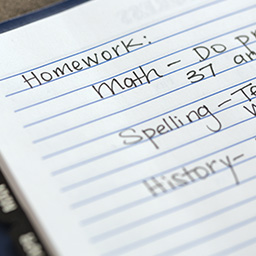 Homework:
Math - Do
37
Spelling -
History -